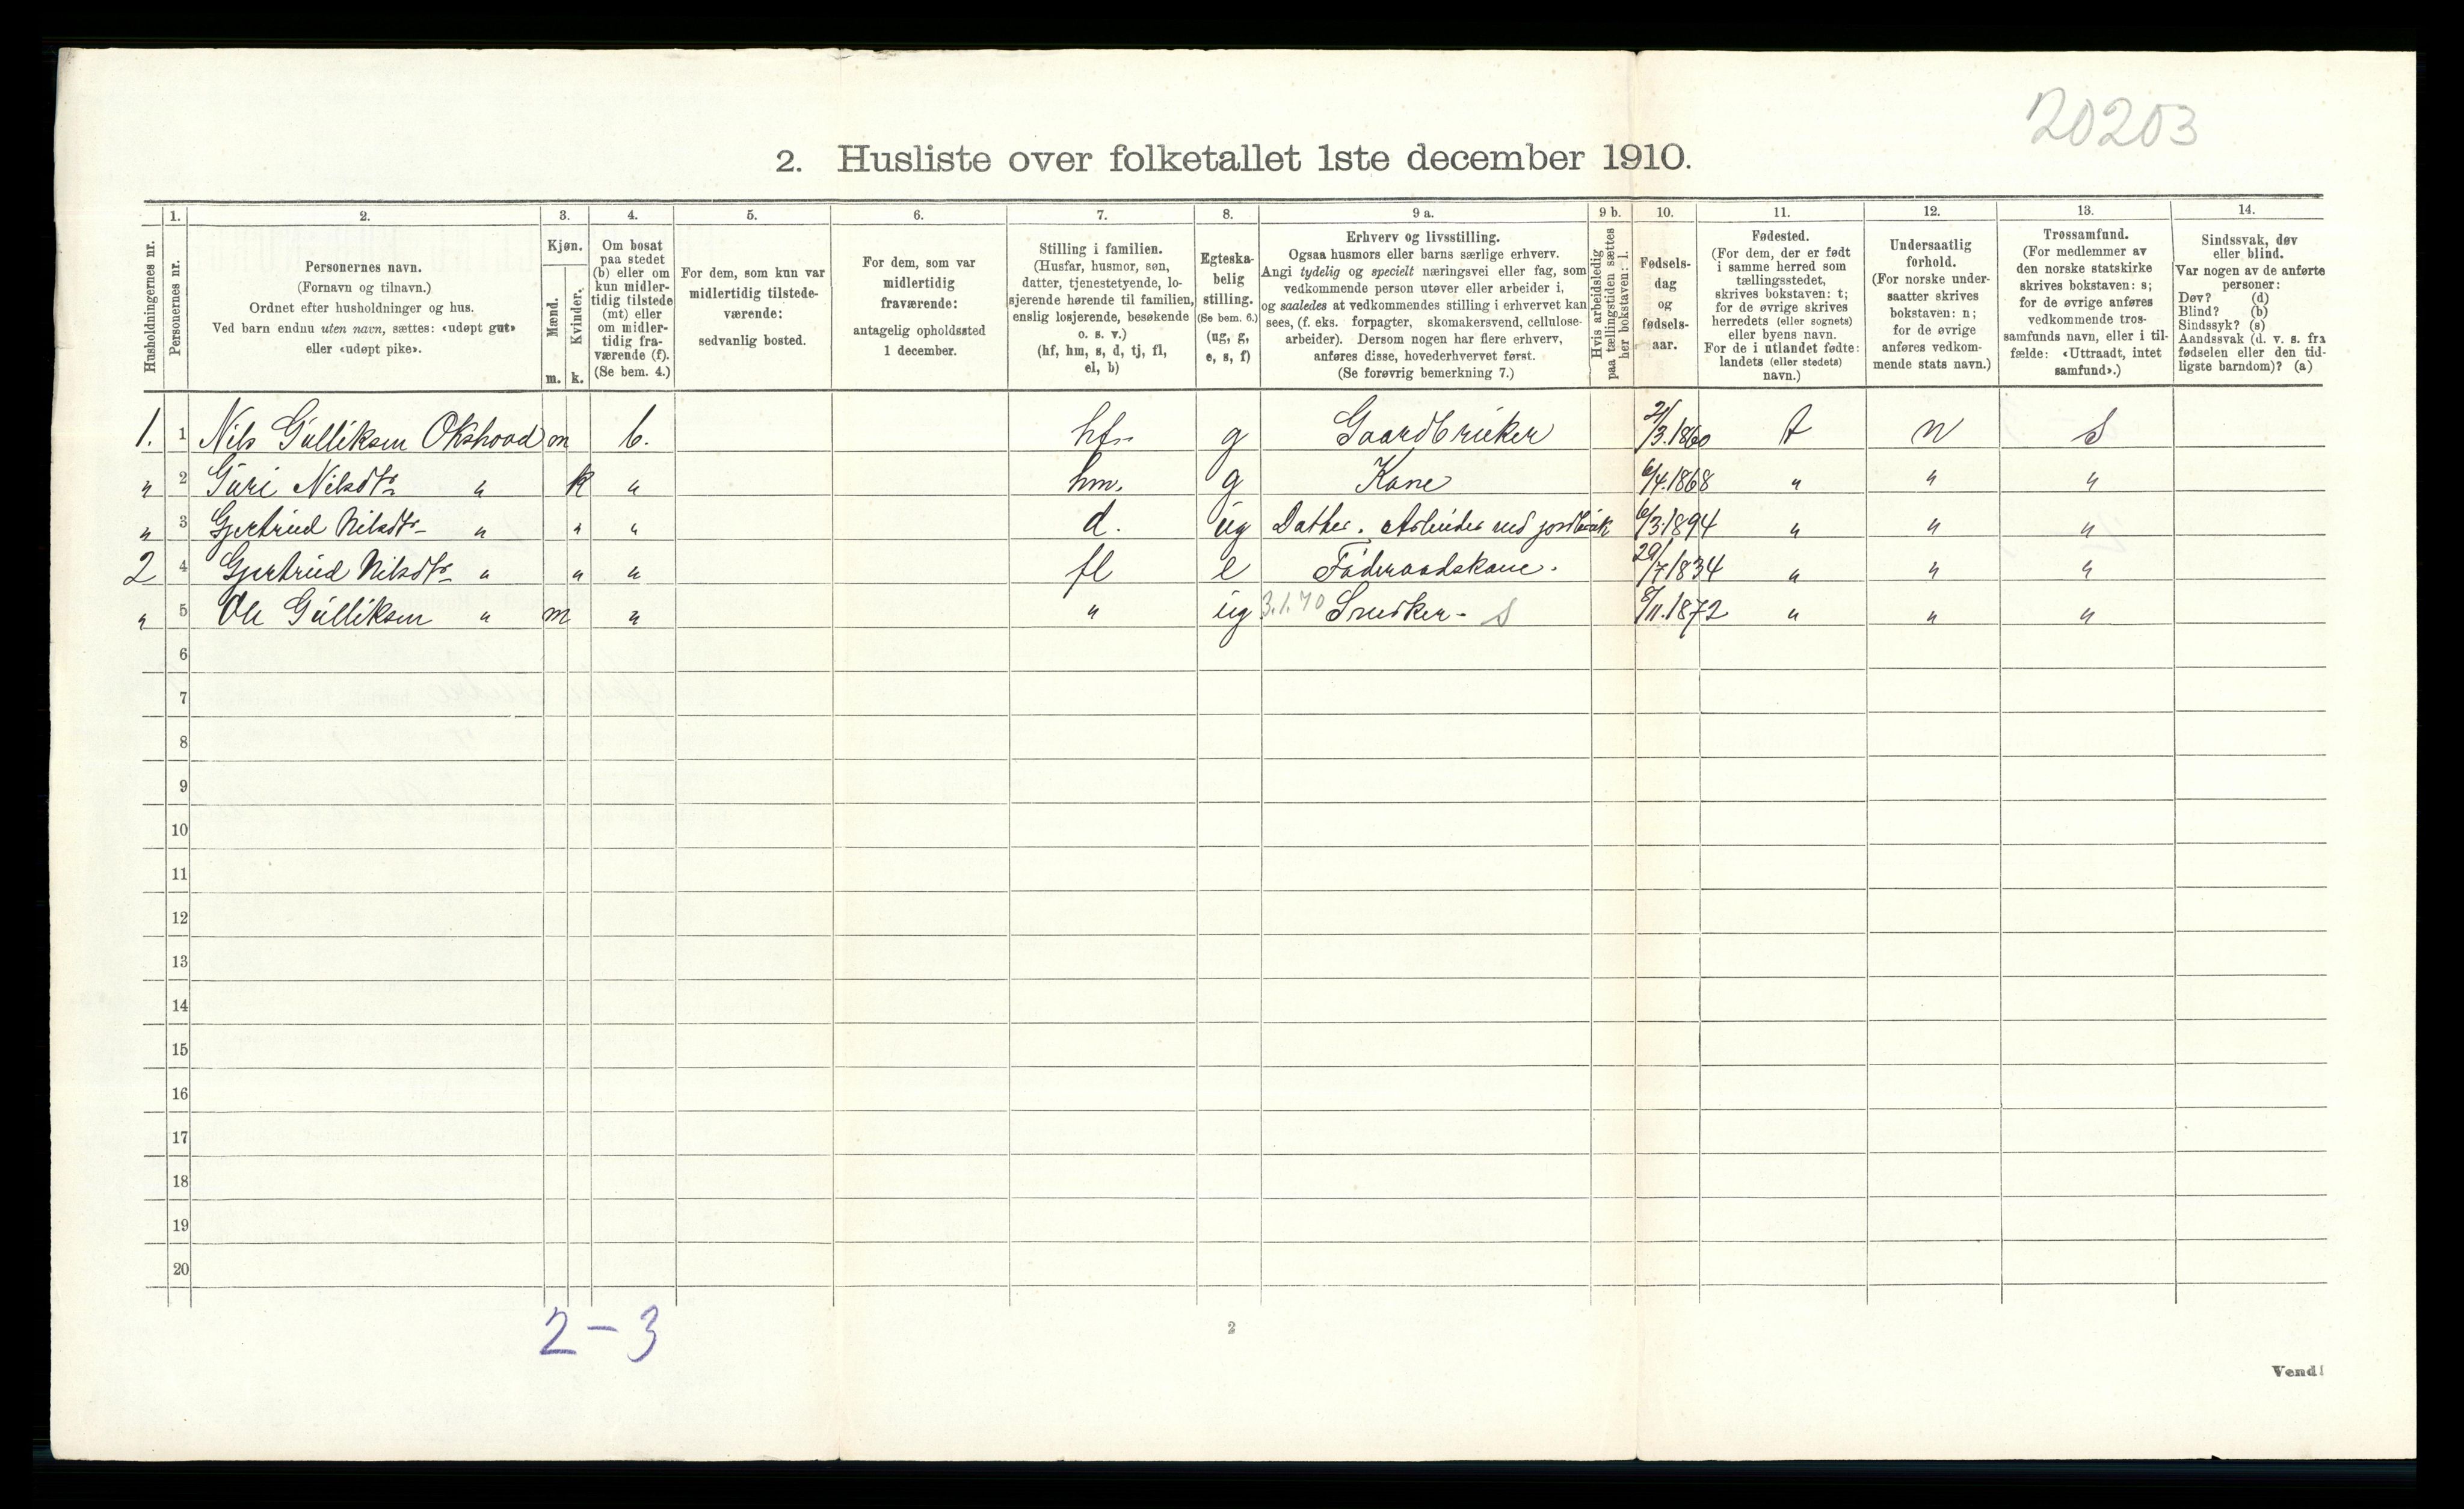 20203
2. Husliste over folketallet 1ste december 1910.
Husholdningernes nr.
1.
Personernes nr.
2.
Personernes navn.
(Fornavn og tilnavn.)
Ordnet efter husholdninger og hus.
Ved barn endnu uten navn, sættes: «udøpt gut»
eller «udøpt pike».
3.
Kjøn.
Mænd.
Kvinder.
m. k.
4.
Om bosat
paa stedet
(b) eller om
kun midler-
tidig tilstede
(mt) eller
om midler-
tidig fra-
værende (f).
(Se bem. 4.)
5.
For dem, som kun var
midlertidig tilstede-
værende:
sedvanlig bosted.
6.
For dem, som var
midlertidig
fraværende:
antagelig opholdssted
1 december.
7.
Stilling i familien.
(Husfar, husmor, søn,
datter, tjenestetyende, lo-
sjerende hørende til familien,
enslig losjerende, besøkende
o. s. v.)
(hf, hm, s, d, tj, fl,
el, b)
8.
Egteska-
belig
stilling.
(Se bem. 6.)
(ug, g,
e, s, f)
9 a.
Erhverv og livsstilling.
Ogsaa husmors eller barns særlige erhverv.
Angi tydelig og specielt næringsvei eller fag, som
vedkommende person utøver eller arbeider i,
og saaledes at vedkommendes stilling i erhvervet kan
sees, (f. eks. forpagter, skomakersvend, cellulose-
arbeider). Dersom nogen har flere erhverv,
anføres disse, hovederhvervet først.
(Se forøvrig bemerkning 7.)
9 b.
Hvis arbeidsledig
paa tællingstiden sættes
her bokstaven: l.
10.
Fødsels-
dag
og
fødsels-
aar.
11.
Fødested.
(For dem, der er født
i samme herred som
tællingsstedet,
skrives bokstaven: t;
for de øvrige skrives
herredets (eller sognets)
eller byens navn.
For de i utlandet fødte:
landets (eller stedets)
navn.)
12.
Undersaatlig
forhold.
(For norske under-
saatter skrives
bokstaven: n;
for de øvrige
anføres vedkom-
mende stats navn.)
13.
Trossamfund.
(For medlemmer av
den norske statskirke
skrives bokstaven: s;
for de øvrige anføres
vedkommende tros-
samfunds navn, eller i til-
fælde: «Uttraadt, intet
samfund».)
14.
Sindssvak, døv
eller blind.
Var nogen av de anførte
personer:
Døv? (d)
Blind? (b)
Sindssyk? (s)
Aandssvak (d. v. s. fra
fødselen eller den tid-
ligste barndom)? (a)
1. 1 Nils Gulliksen Okshovd m b. hf. g Gaardbruker 21/3.1860 t n s
" 2 Guri Nilsdtr " k " hm. g Kone 6/4.1868 " " "
" 3 Gjertrud Nilsdtr " " " d. ug Datter. Arbeider ved jordbruk 6/3.1894 " " "
2 4 Gjertrud Nilsdtr " " " fl e Føderaadskone. 29/7 1834 " " "
" 5 Ole Gulliksen " m " " ug 3.1.70 Snedker - s 8/11.1872 " " "
6
7
8
9
10
11
12
13
14
15
16
17
18
19
20
2 - 3
2
Vend!